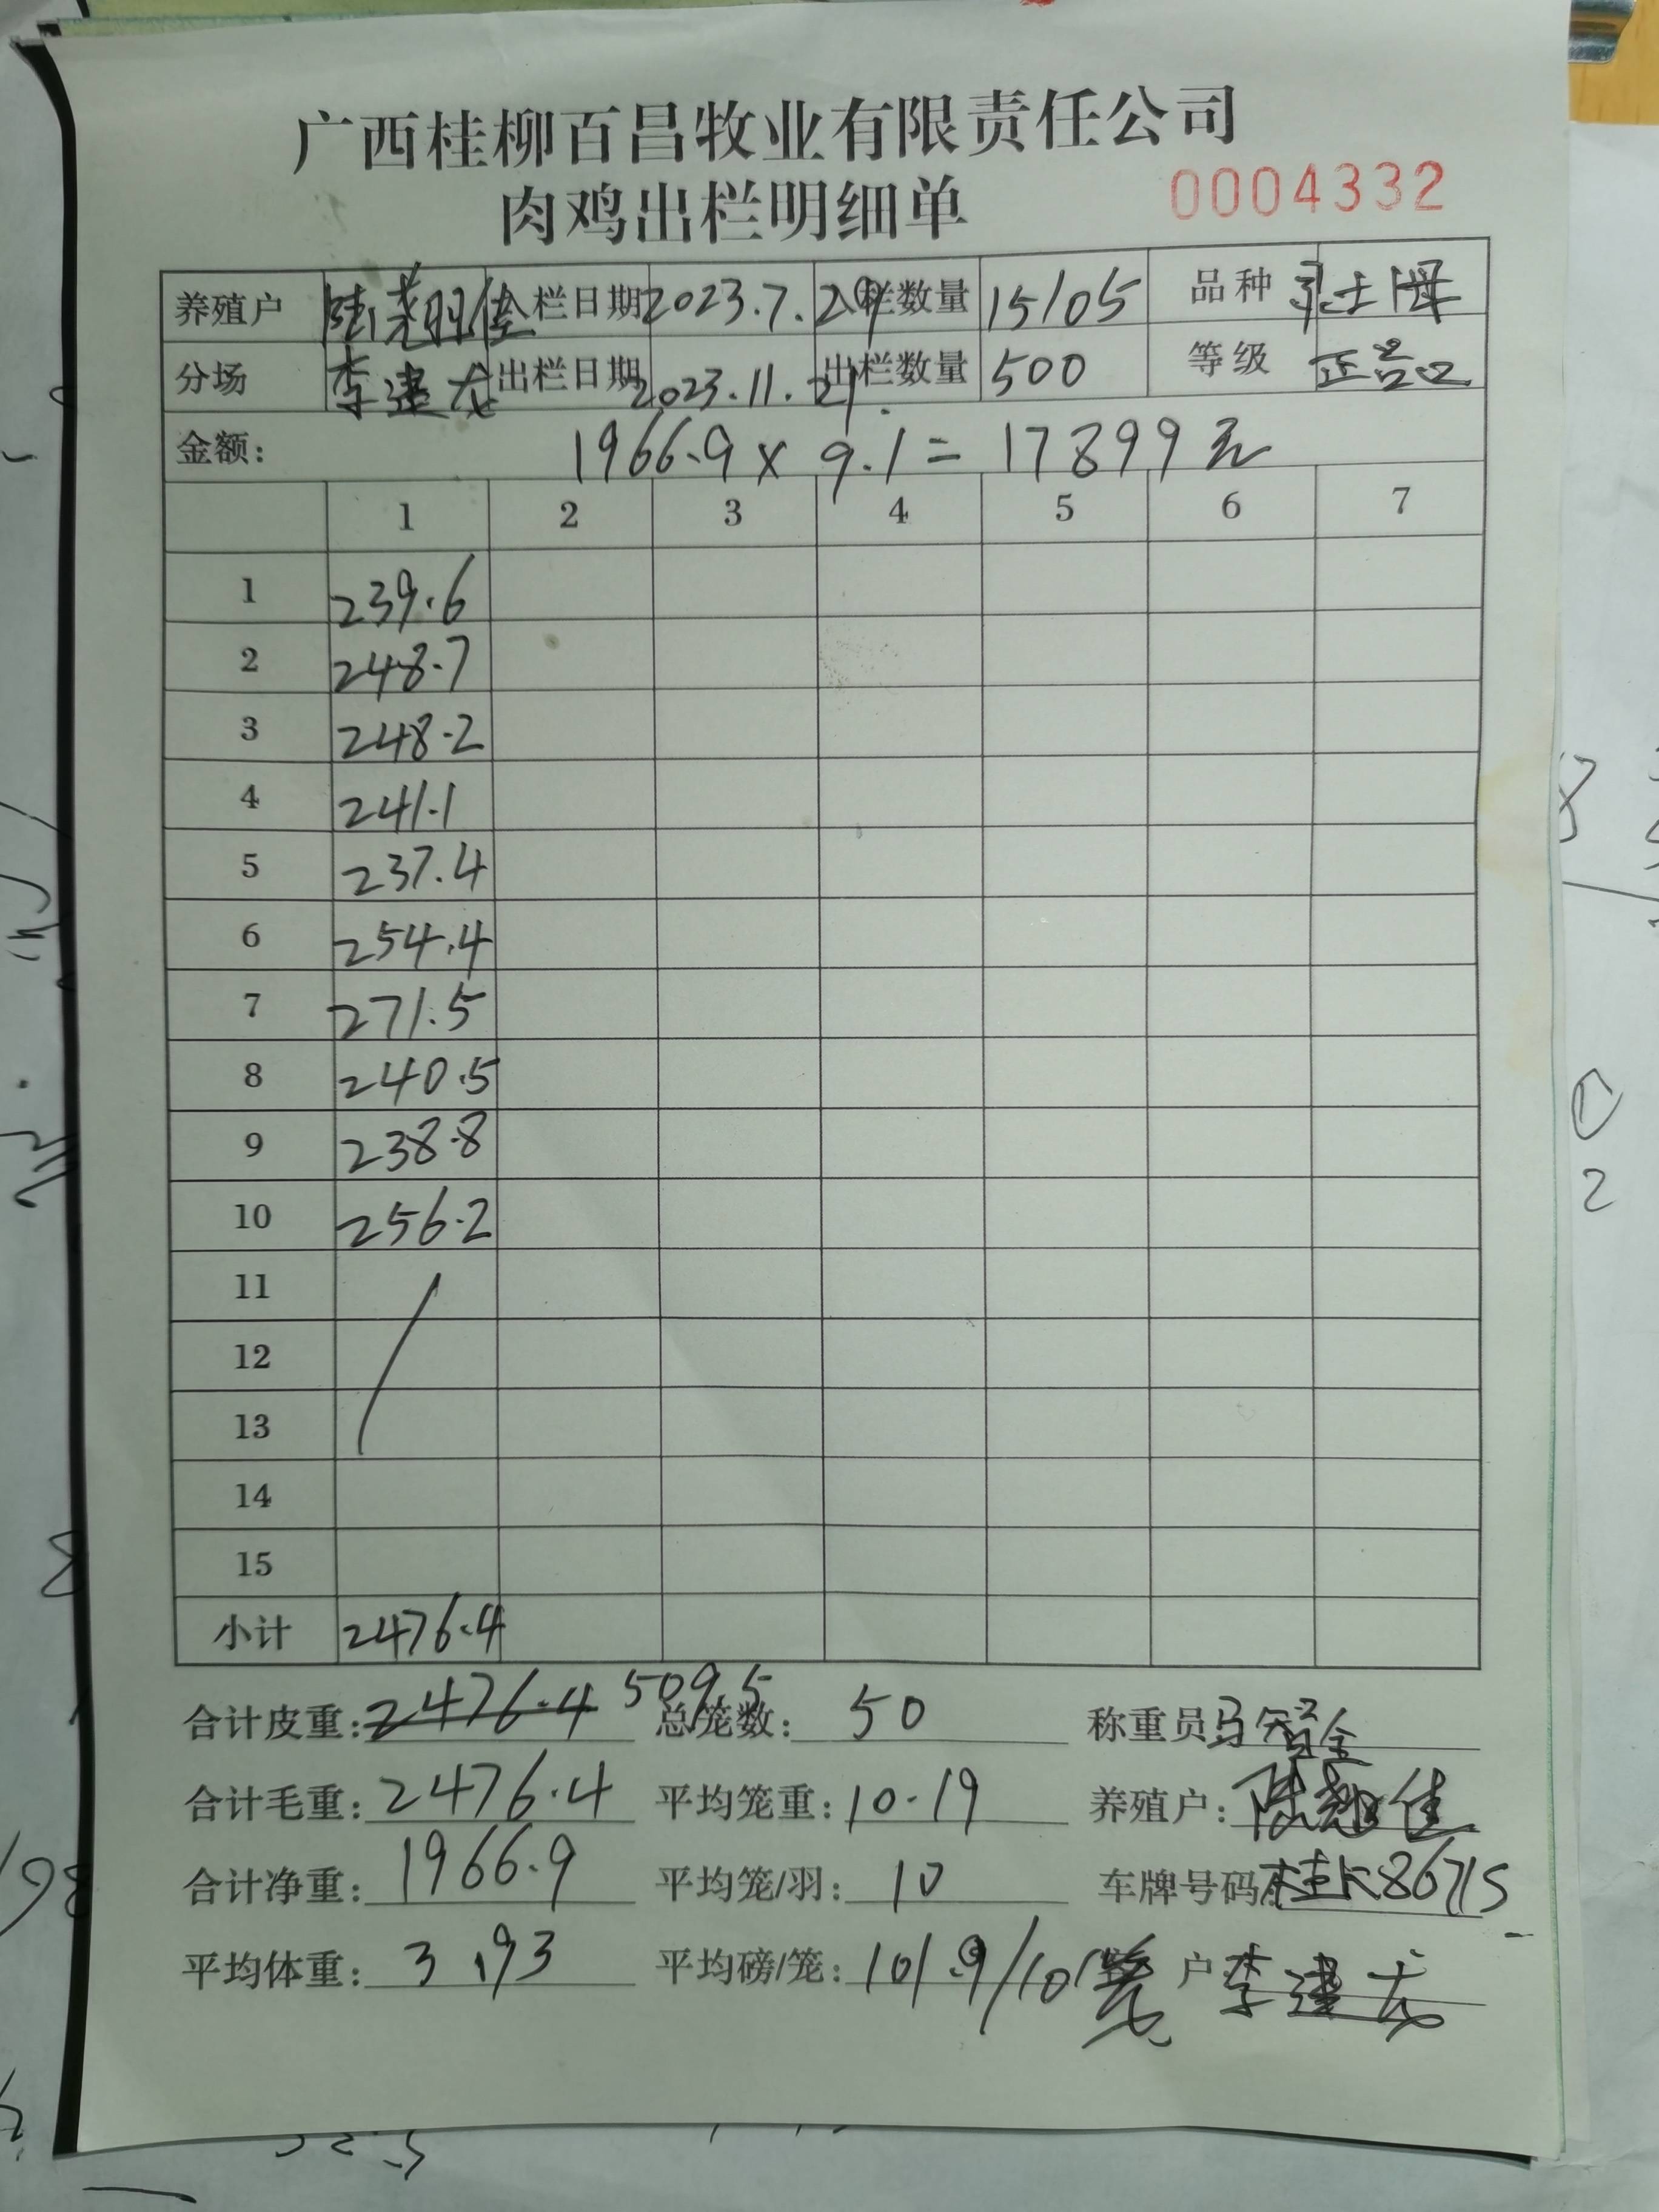 广西桂柳百昌牧业有限责任公司
肉鸡出栏明细单 0004332
养殖户 栏日期 2023.7.29 栏数量 15105 品种 土
分场 李建龙 出栏日期 2023.11.21. 出栏数量 500 等级 正品
金额: 1966.9 x 9.1 = 17899元
1 2 3 4 5 6 7
1 239.6
2 248.7
3 248.2
4 241.1
5 237.4
6 254.4
7 271.5
8 240.5
9 238.8
10 256.2
11
12
13
14
15
小计 2476.4
合计皮重: 2476.4 509.5 总笼数: 50 称重员
合计毛重: 2476.4 平均笼重: 10.19 养殖户: 佳
合计净重: 1966.9 平均笼/羽: 10 车牌号码 桂K86715
平均体重: 3.93 平均磅/笼: 101.9/10 户 李建龙